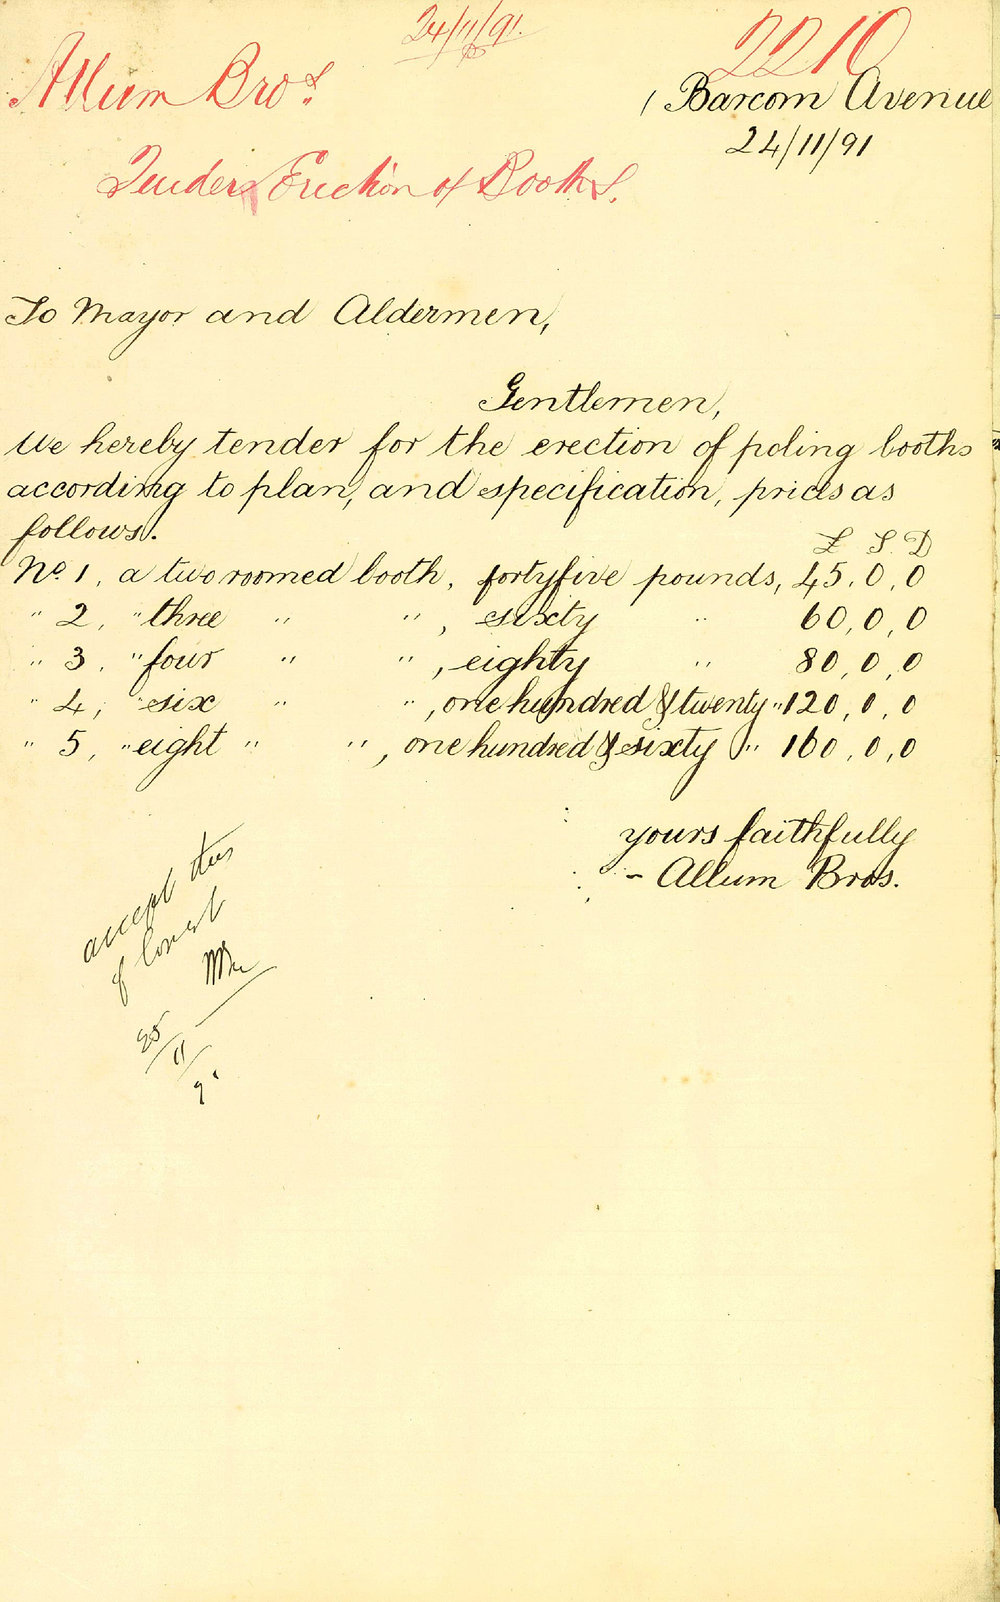 24/11/91.
2210
Allum Bros
1 Barcom Avenue
24/11/91
Tenders Erection of Booths.
To Mayor and Aldermen,
Gentlemen,
We hereby tender for the erection of poling booths
according to plan, and especification, prices as
follows.
£ S D
No. 1, a two roomed booth, fortyfive pounds, 45,0,0
" 2, " three " " , sixty " 60,0,0
" 3, " four " " , eighty " 80,0,0
" 4, " six " " , one hundred & twenty " 120,0,0
" 5, " eight " " , one hundred & sixty " 160,0,0
yours faithfully
- Allum Bros.
accept this
if lowest
25/11/91